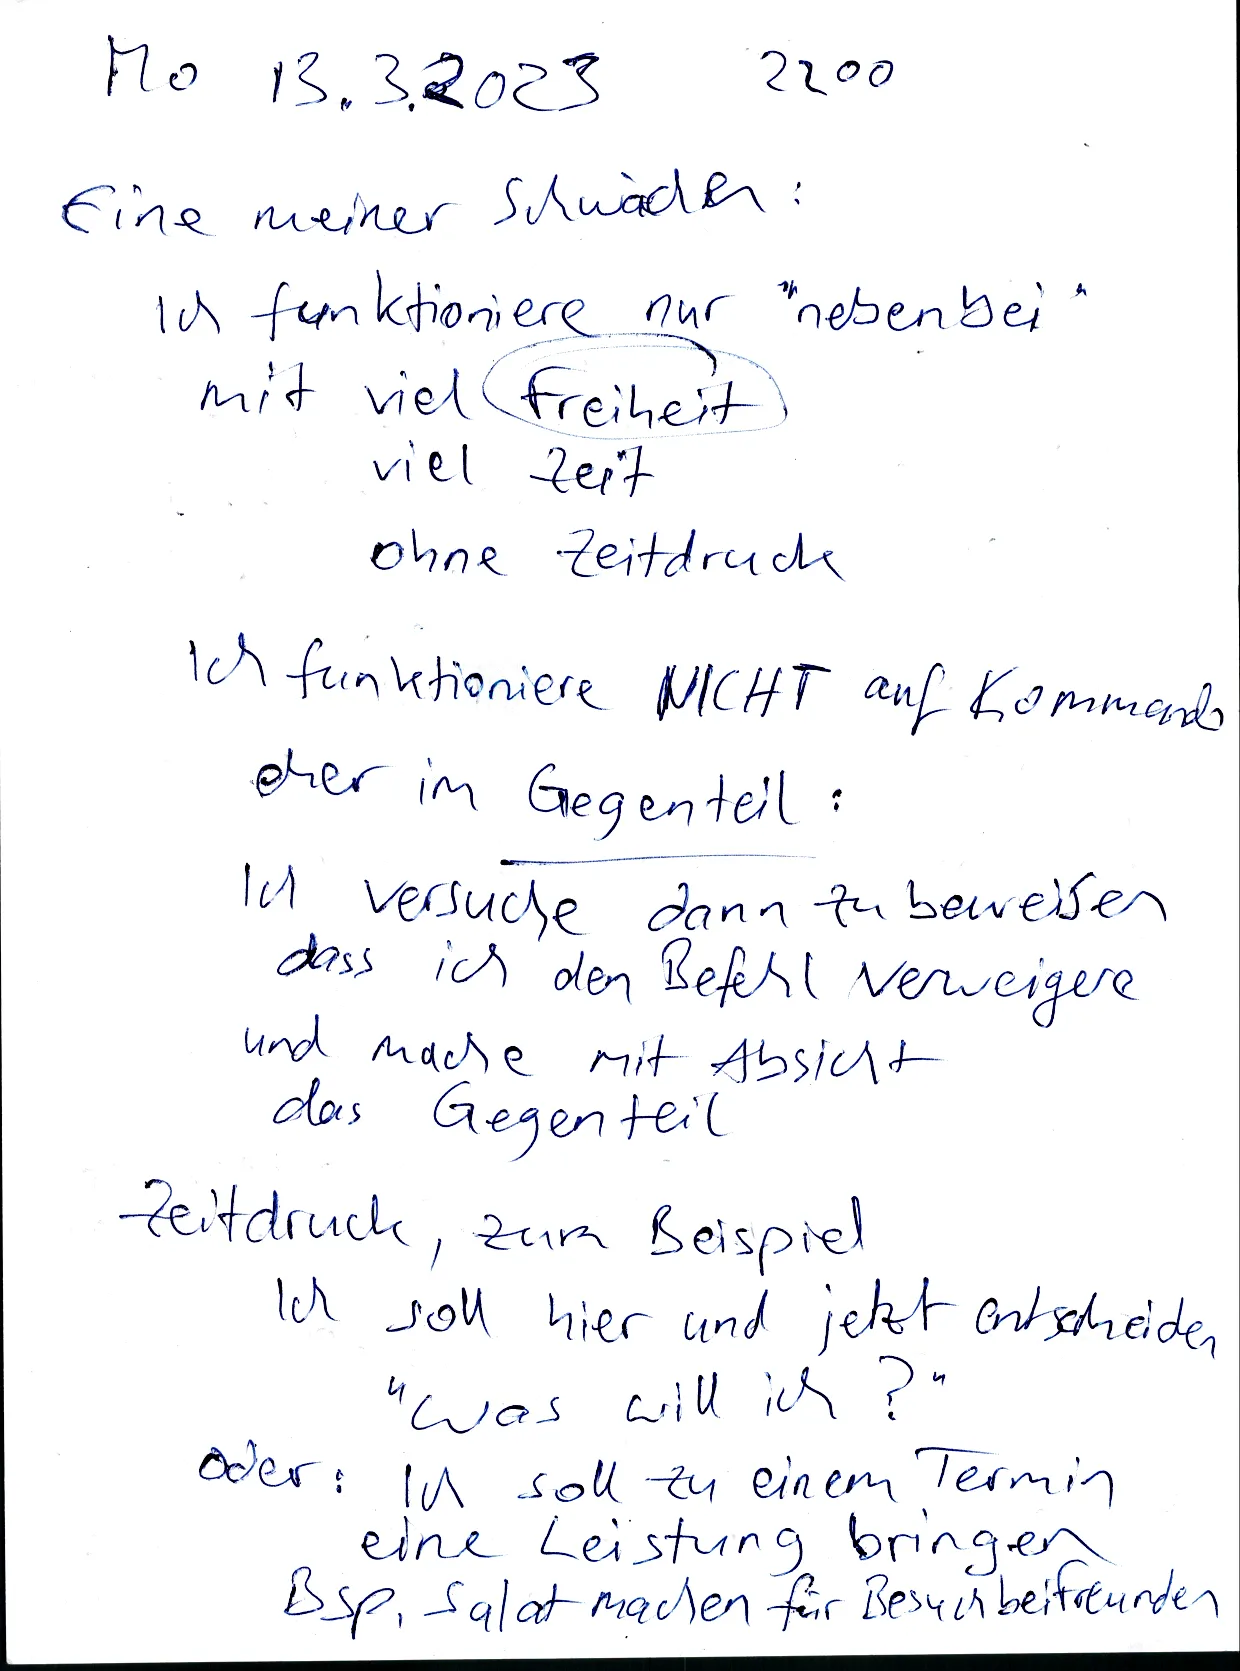 Mo 13.3.2023 2200
Eine meiner Schwächen:
Ich funktioniere nur "nebenbei"
mit viel Freiheit
viel Zeit
ohne Zeitdruck
Ich funktioniere NICHT auf Kommando
eher im Gegenteil:
Ich versuche dann zu beweisen
dass ich den Befehl verweigere
und mache mit Absicht
das Gegenteil
Zeitdruck, zum Beispiel
Ich soll hier und jetzt entscheiden
"Was will ich?"
oder: Ich soll zu einem Termin
eine Leistung bringen
Bsp. Salat machen für Besuch bei Freunden